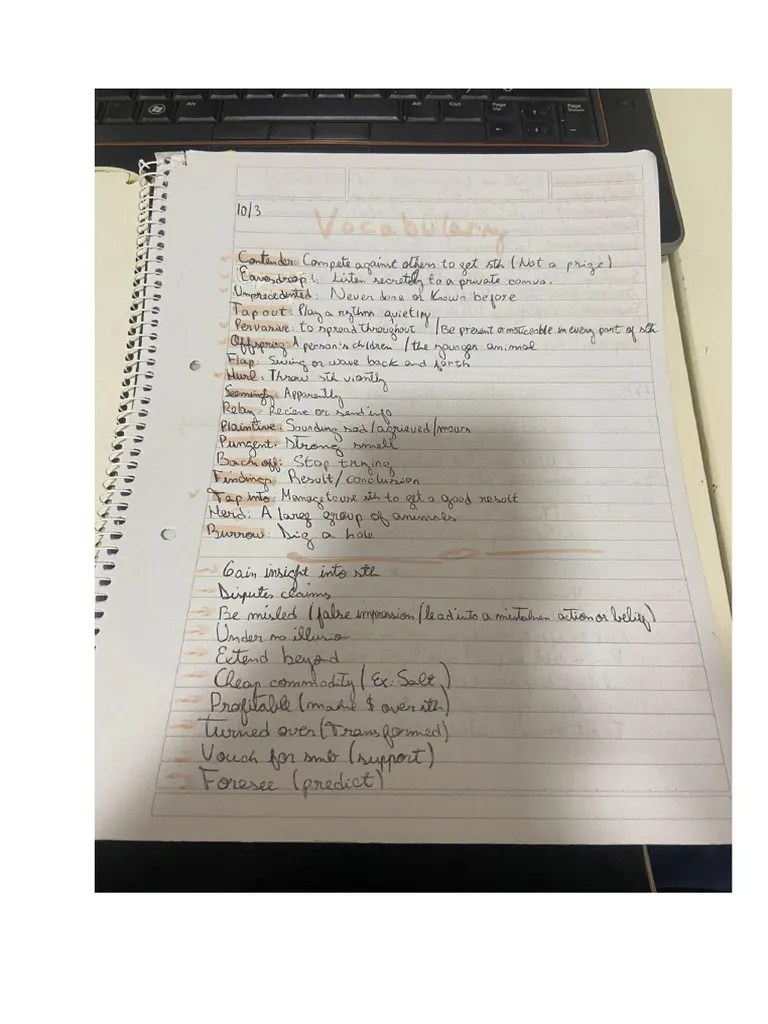 10/3
Vocabulary
Contender: Compete against others to get sth (Not a prize)
Eavesdrop: Listen secretely to a private convo.
Unprecedented: Never done or known before
Tap out: Play a rythm quietly
Pervasive: to spread throughout /Be present or noticeable in every part of sth
Offspring: A person's children / the younger animal
Flap: Swing or wave back and forth
Hurl: Throw sth viontly
Seemingly: Apparently
Relay: Recieve or send info
Plaintive: Sounding sad/agrieved/mourn
Pungent: Strong smell
Back off: Stop trying
Findings: Result/conclusion
Tap into: Manage to use sth to get a good result
Herd: A large group of animals
Burrow: Dig a hole
→ Gain insight into sth
→ Disputes claims
→ Be misled (false impression/lead into a mistaken action or belief)
→ Under no illusion
→ Extend beyond
→ Cheap commodity (Ex: Salt)
→ Profitable (make $ over sth)
→ Turned over (Transformed)
→ Vouch for smb (support)
→ Foresee (predict)